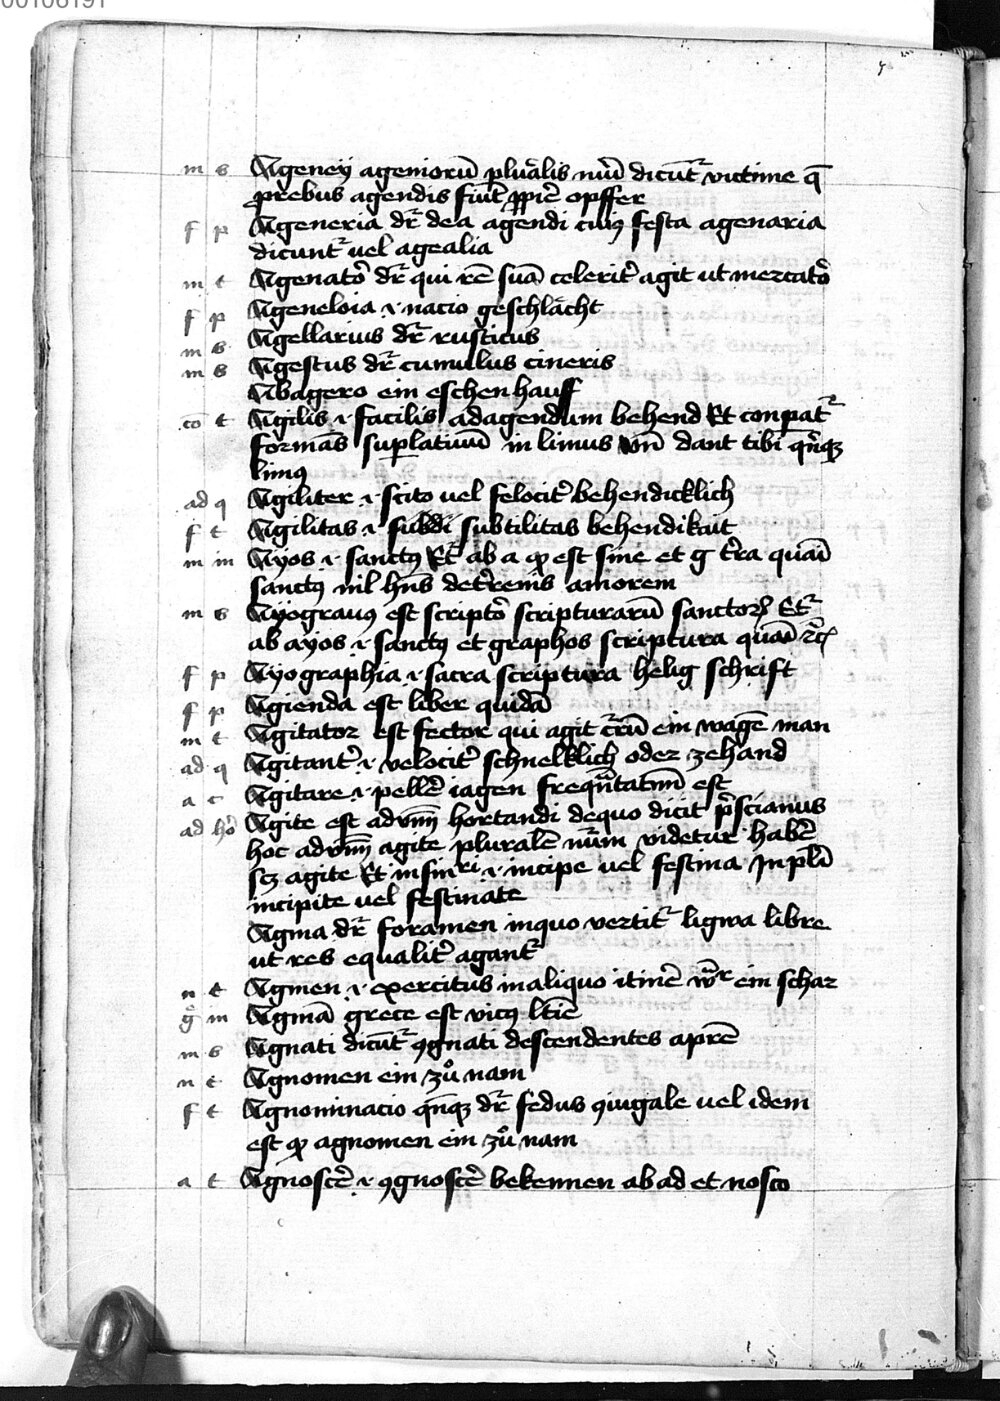 00106191
m s Ageney ageniorū plurālis nūi dicūtᷣ victime q̄
prebus agendis fiūt ꝓprie opffer
f p Ageneria dr̄ dea agendi cuiꝰ festa agenaria
dicuntᷣ uel agealia
m t Agenatoᷣ dr̄ qui rē suā celeritᷣ agit ut mercatoᷣ
f p Ageneloia .i. nacio geschlächt
m s Agellarius dr̄ rusticus
m s Agestus dr̄ cumulus cineris
Abagero ein eschen hauff
cō t Agilis .i. facilis adagendum behend Et conpatᷣ
formās suꝑlatiuū in limus vn̄ dant tibi qn̄qꝫ
limꝰ
ad q Agiliter .i. scito uel felocitᷣ behendicklich
f t Agilitas .i. subtilitas behendikait
m in Ayos .i. sanctꝰ Etᷣ ab a qᷣ est sine et g tᷣra quasi
sanctꝰ nil hn̄s detᷣrenis amorem
m s Ayograuꝰ est scriptoᷣ scripturarū sanctoꝝ Etᷣ
ab ayos .i. sanctꝰ et graphos scriptura quasi
f p Ayographia .i. sacra scriptura helig schrift
f p Agienda est liber quidā
m t Agitator est fector qui agit currū ein wagē man
ad q Agitantᷣ .i. velocitᷣ schnelklich oder zehand
a c Agitare .i. pellē iagen frequētatiuū est
ad hoᷣ Agite est aduīm hortandi dequo dicit pᷣscianus
hoc aduīm agite pluralē nūm videtur habē
sꝫ agite Et in sinᷣri .i. incipe uel festina In pl̄i
incipite uel festinate
Agma dr̄ foramen inquo vertitᷣ ligwa libre
ut res equalitᷣ agantᷣ
n t Agmen .i. exercitus inaliquo itinē ein schar
gᷣ m Agmā grece est vicꝰ lt̄ie
m s Agnati dicūtᷣ ꝯgnati descendentes apr̄e
n t Agnomen ein zů nam
f t Agnominacio qn̄qꝫ dr̄ fedus ꝯiugale uel idem
est qᷣ agnomen ein zů nam
a t Agnoscē .i. ꝯgnoscē bekennen ab ad et nosco